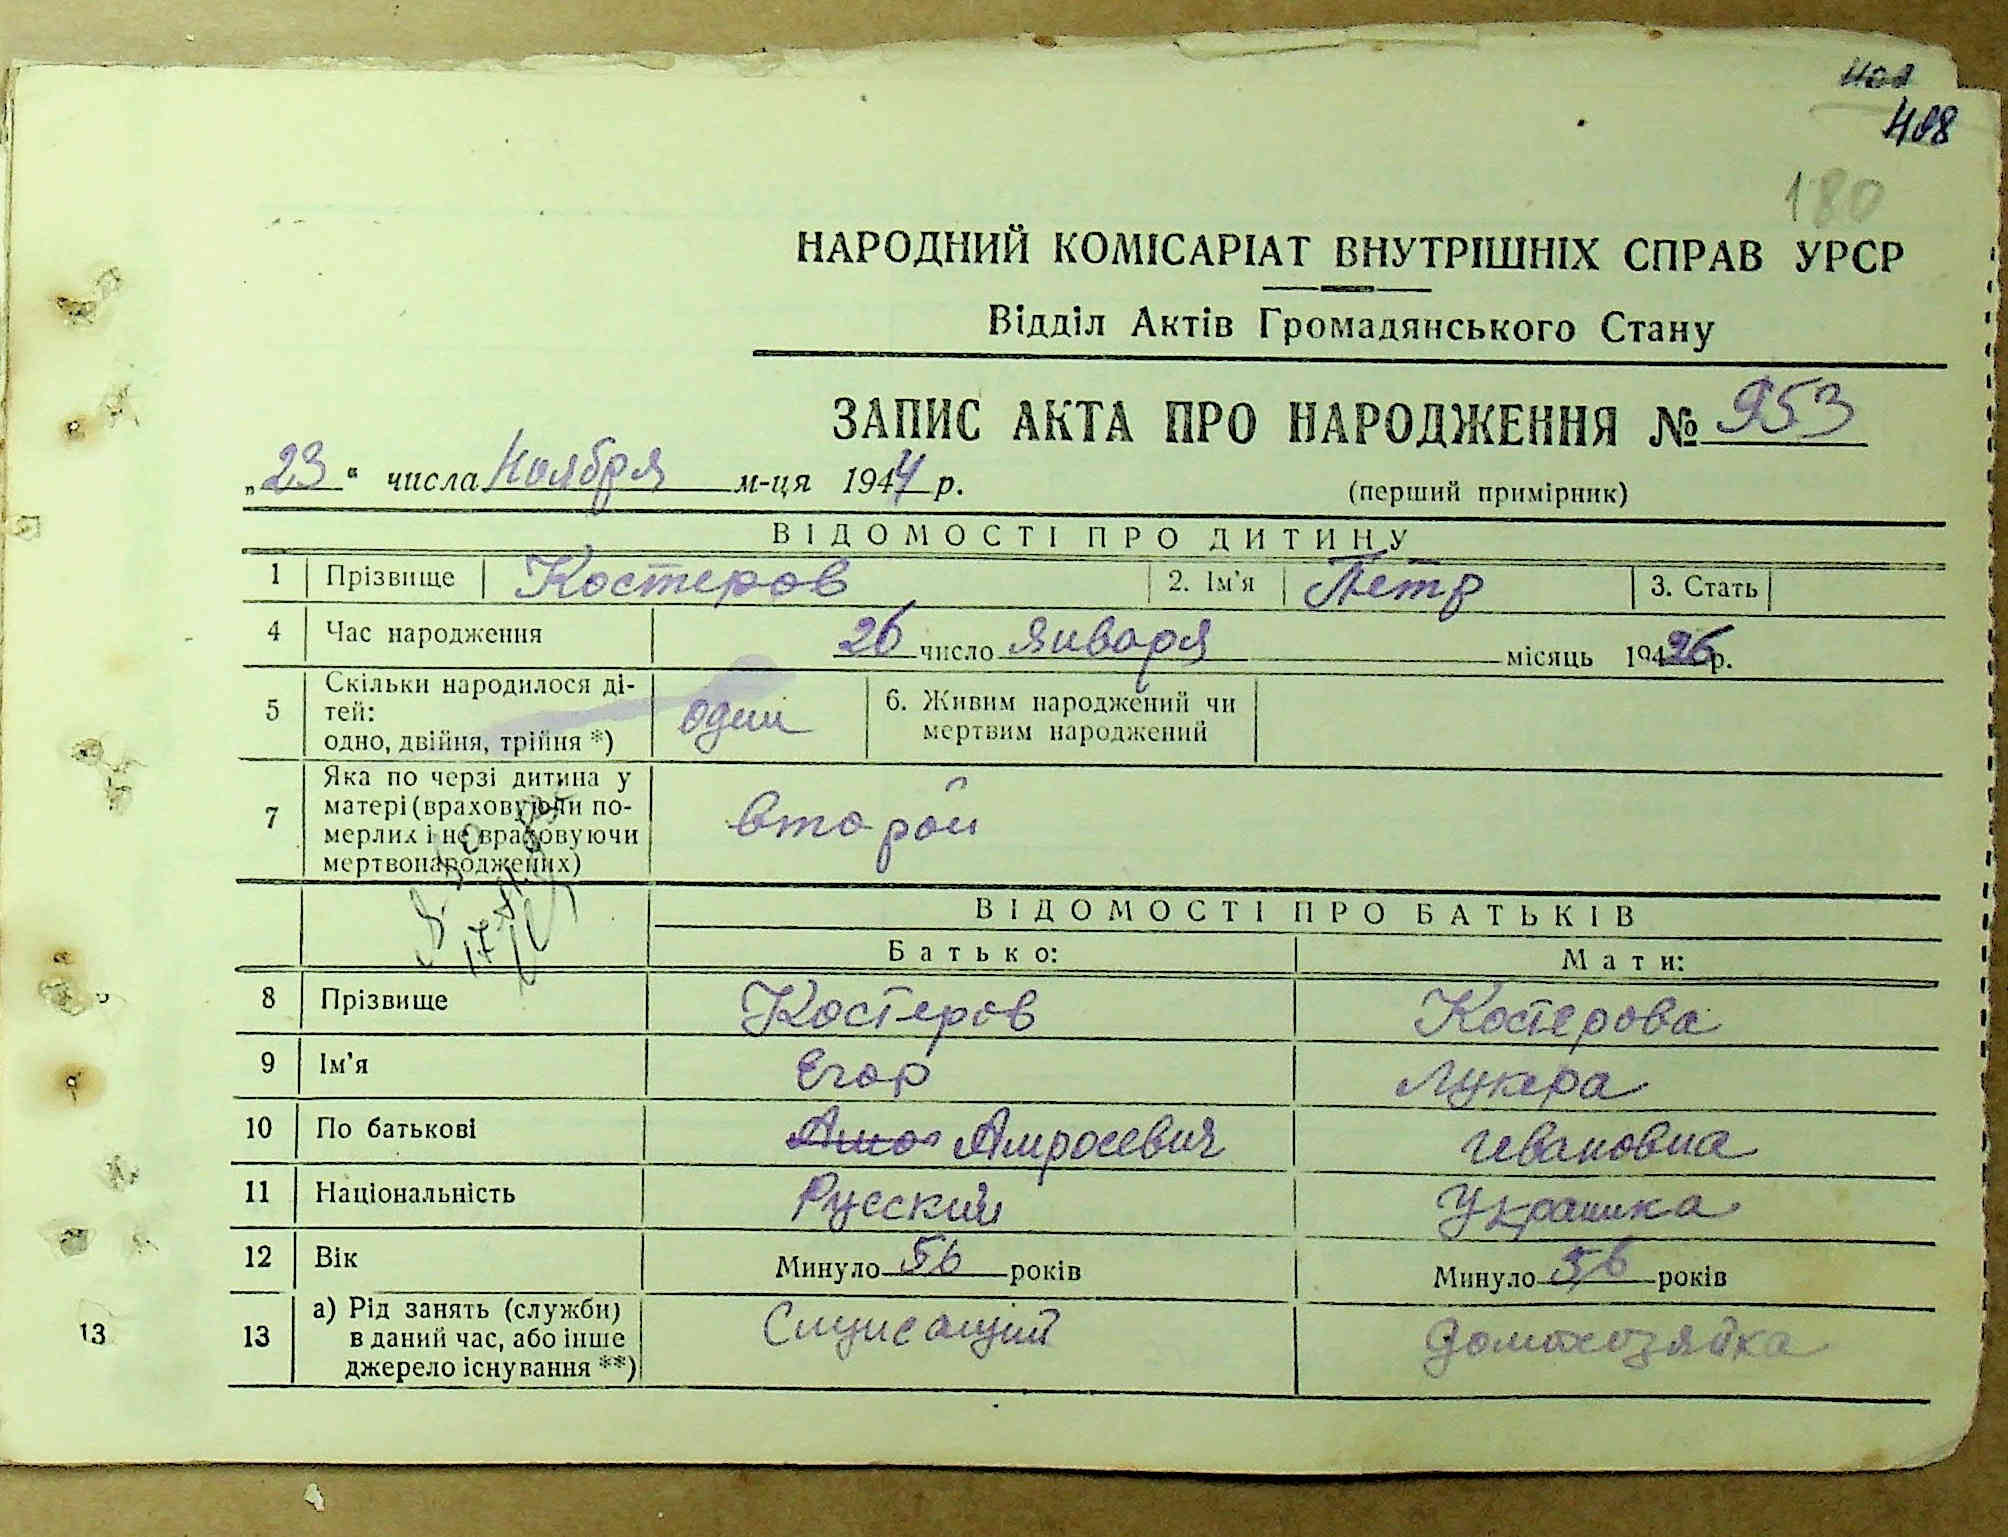 408
180
НАРОДНИЙ КОМІСАРІАТ ВНУТРІШНІХ СПРАВ УРСР
Відділ Актів Громадянського Стану
ЗАПИС АКТА ПРО НАРОДЖЕННЯ № 953
„23“ числа Ноября м-ця 1944 р. (перший примірник)
ВІДОМОСТІ ПРО ДИТИНУ
1 Прізвище Костеров 2. Ім'я Петр 3. Стать
4 Час народження 26 число января місяць 1926 р.
5 Скільки народилося ді-
тей:
одно, двійня, трійня *) один 6. Живим народжений чи
мертвим народжений
7 Яка по черзі дитина у
матері (враховуючи по-
мерлих і не враховуючи
мертвонароджених) второй
ВІДОМОСТІ ПРО БАТЬКІВ
Батько: Мати:
8 Прізвище Костеров Костерова
9 Ім'я Егор Лукера
10 По батькові Амросевич Ивановна
11 Національність Русский Украинка
12 Вік Минуло 56 років Минуло 56 років
13 а) Рід занять (служби)
в даний час, або інше
джерело існування **) Служсащий домохозяйка
13